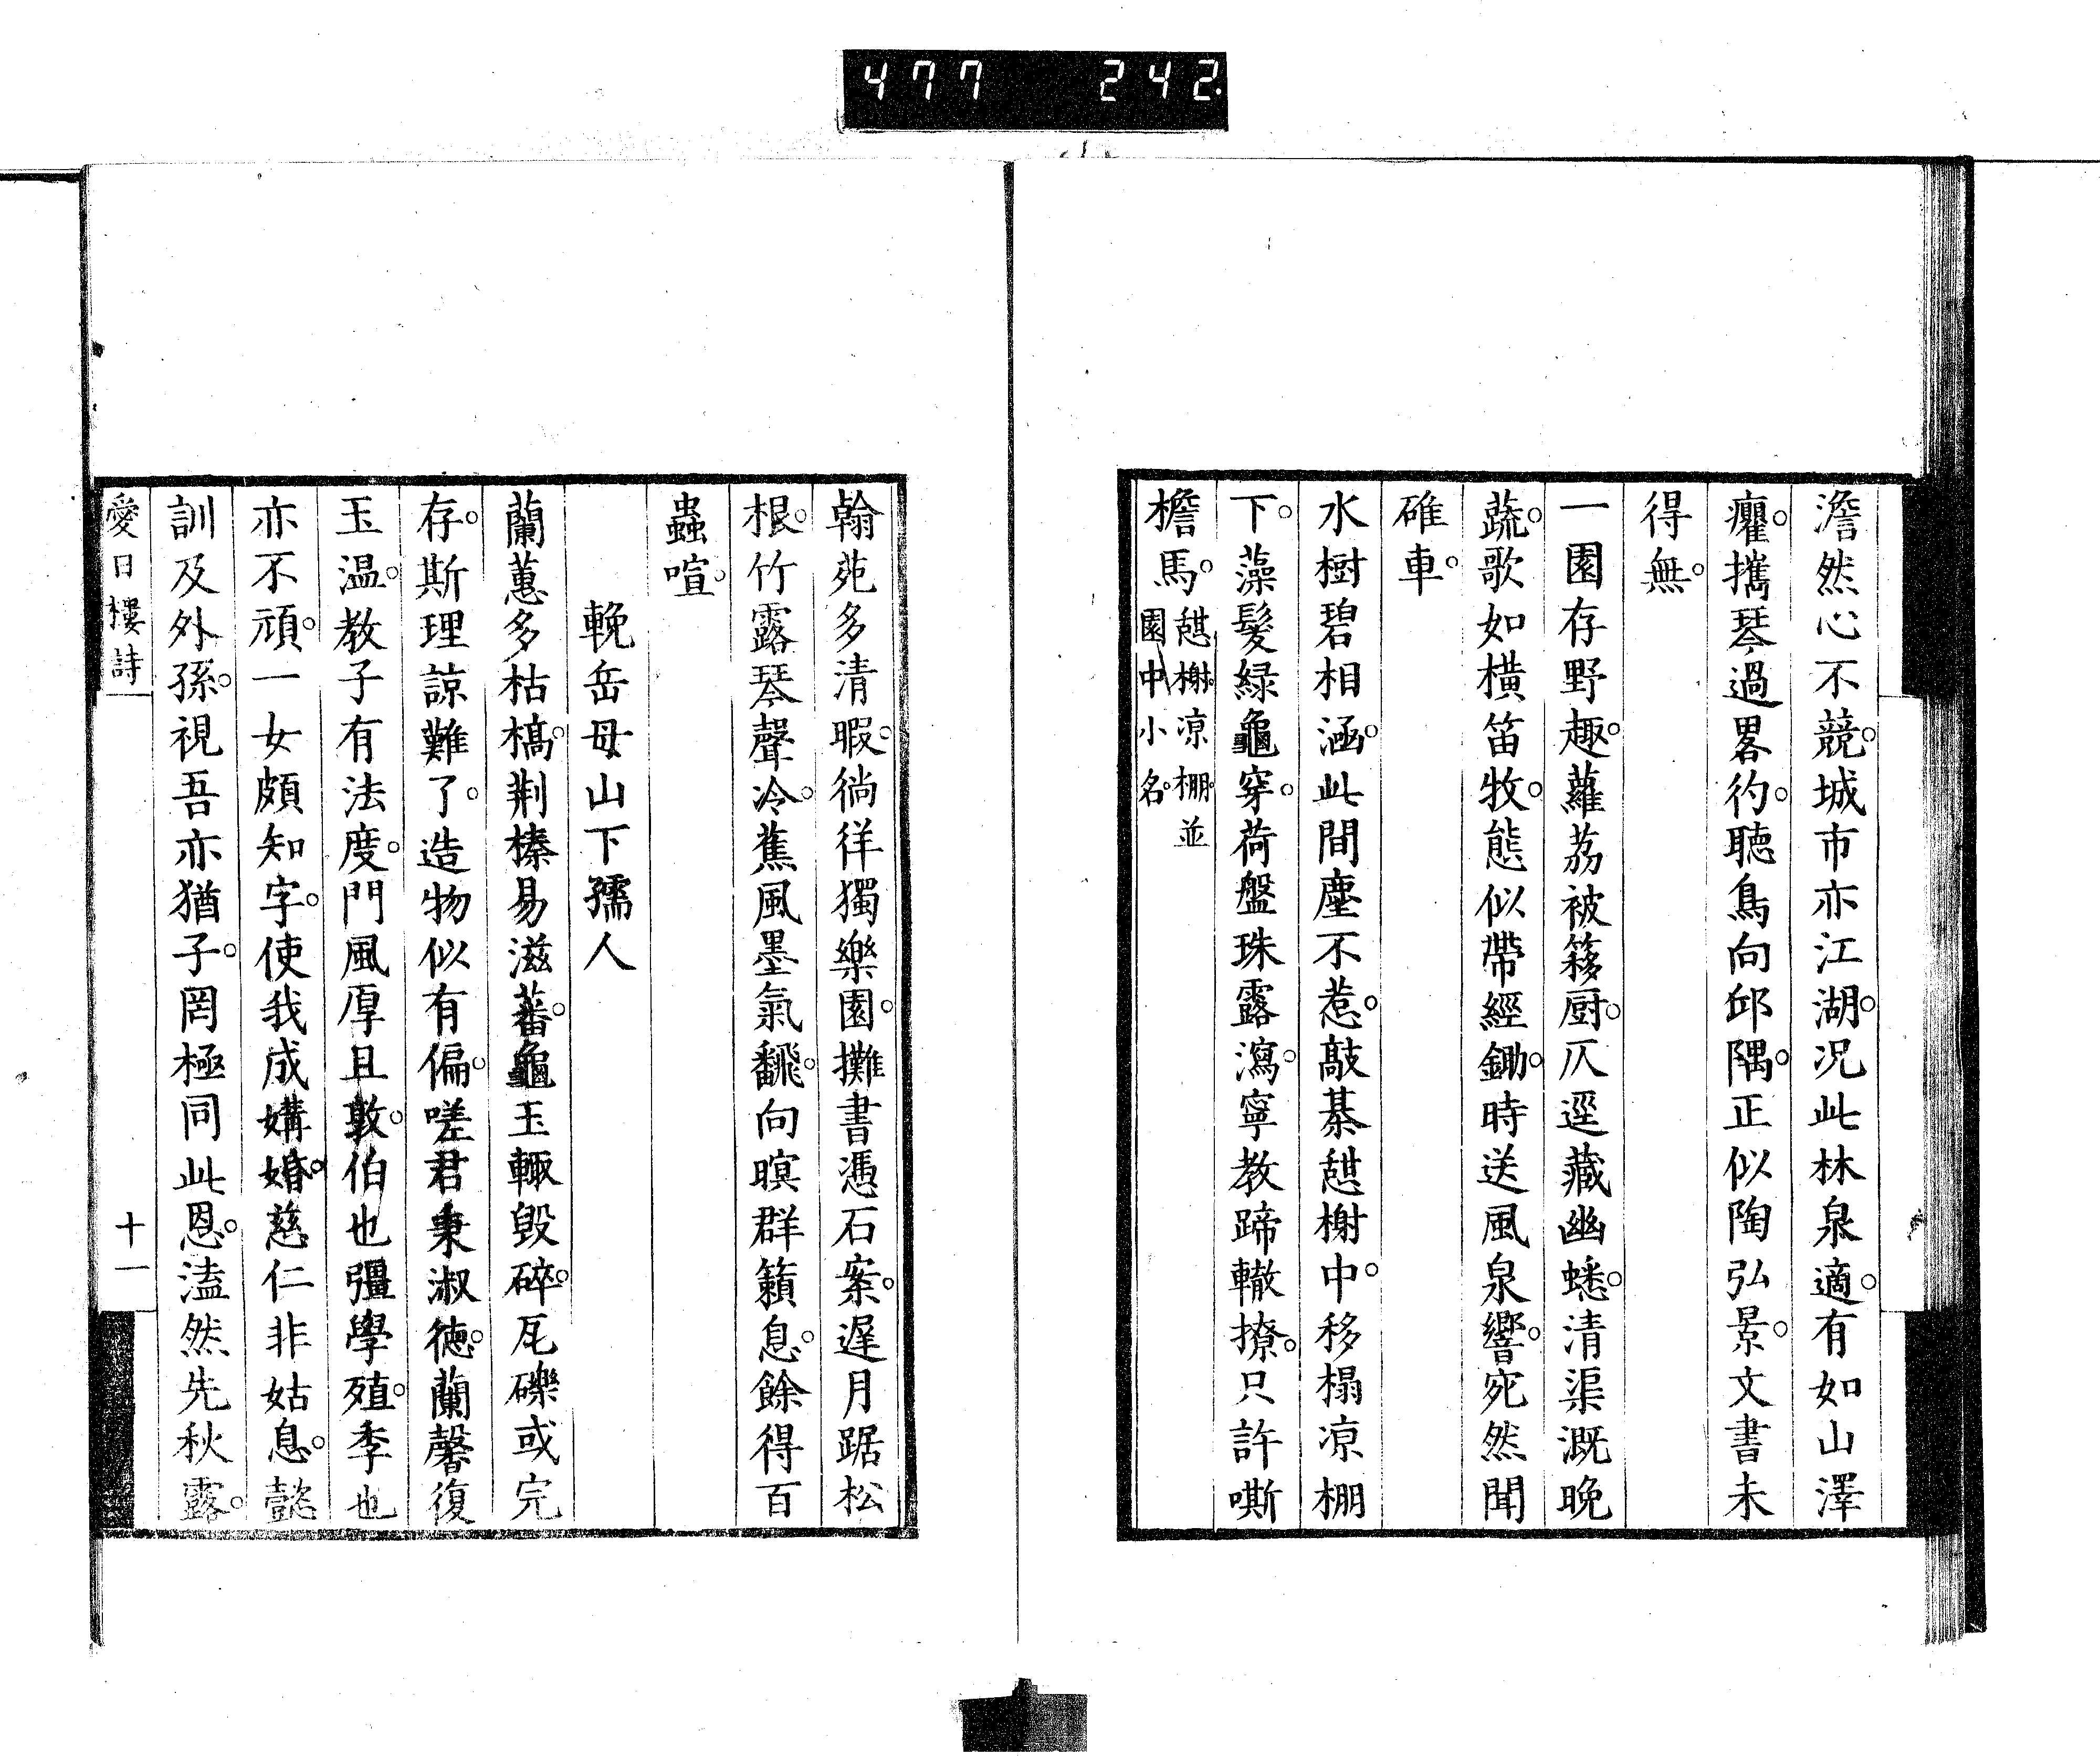 477 242.
澹然心不競。城市亦江湖。况此林泉適。有如山澤
癯。攜琴過畧彴。聽鳥向邱隅。正似陶弘景。文書未
得無。
一園存野趣。蘿荔被簃厨。仄逕藏幽蟋。清渠溉晚
蔬。歌如橫笛牧。態似帶經鋤。時送風泉響。宛然聞
碓車。
水樹碧相涵。此間塵不惹。敲碁憇榭中。移榻凉棚
下。藻髮綠龜穿。荷盤珠露瀉。寧教蹄轍撩。只許嘶
檐馬。憇榭。凉棚。並
園中小名。
翰苑多清暇。徜徉獨樂園。攤書憑石案。遲月踞松
根。竹露琴聲冷。蕉風墨氣飜。向暝群籟息。餘得百
蟲喧。
輓岳母山下孺人
蘭蕙多枯槁。荆榛易滋蕃。龜玉輙毀碎。瓦礫或完
存。斯理諒難了。造物似有偏。嗟君秉淑德。蘭馨復
玉温。教子有法度。門風厚且敦。伯也彊學殖。季也
亦不頑。一女頗知字。使我成媾婚。慈仁非姑息。懿
訓及外孫。視吾亦猶子。罔極同此恩。溘然先秋露。
愛日樓詩
十一